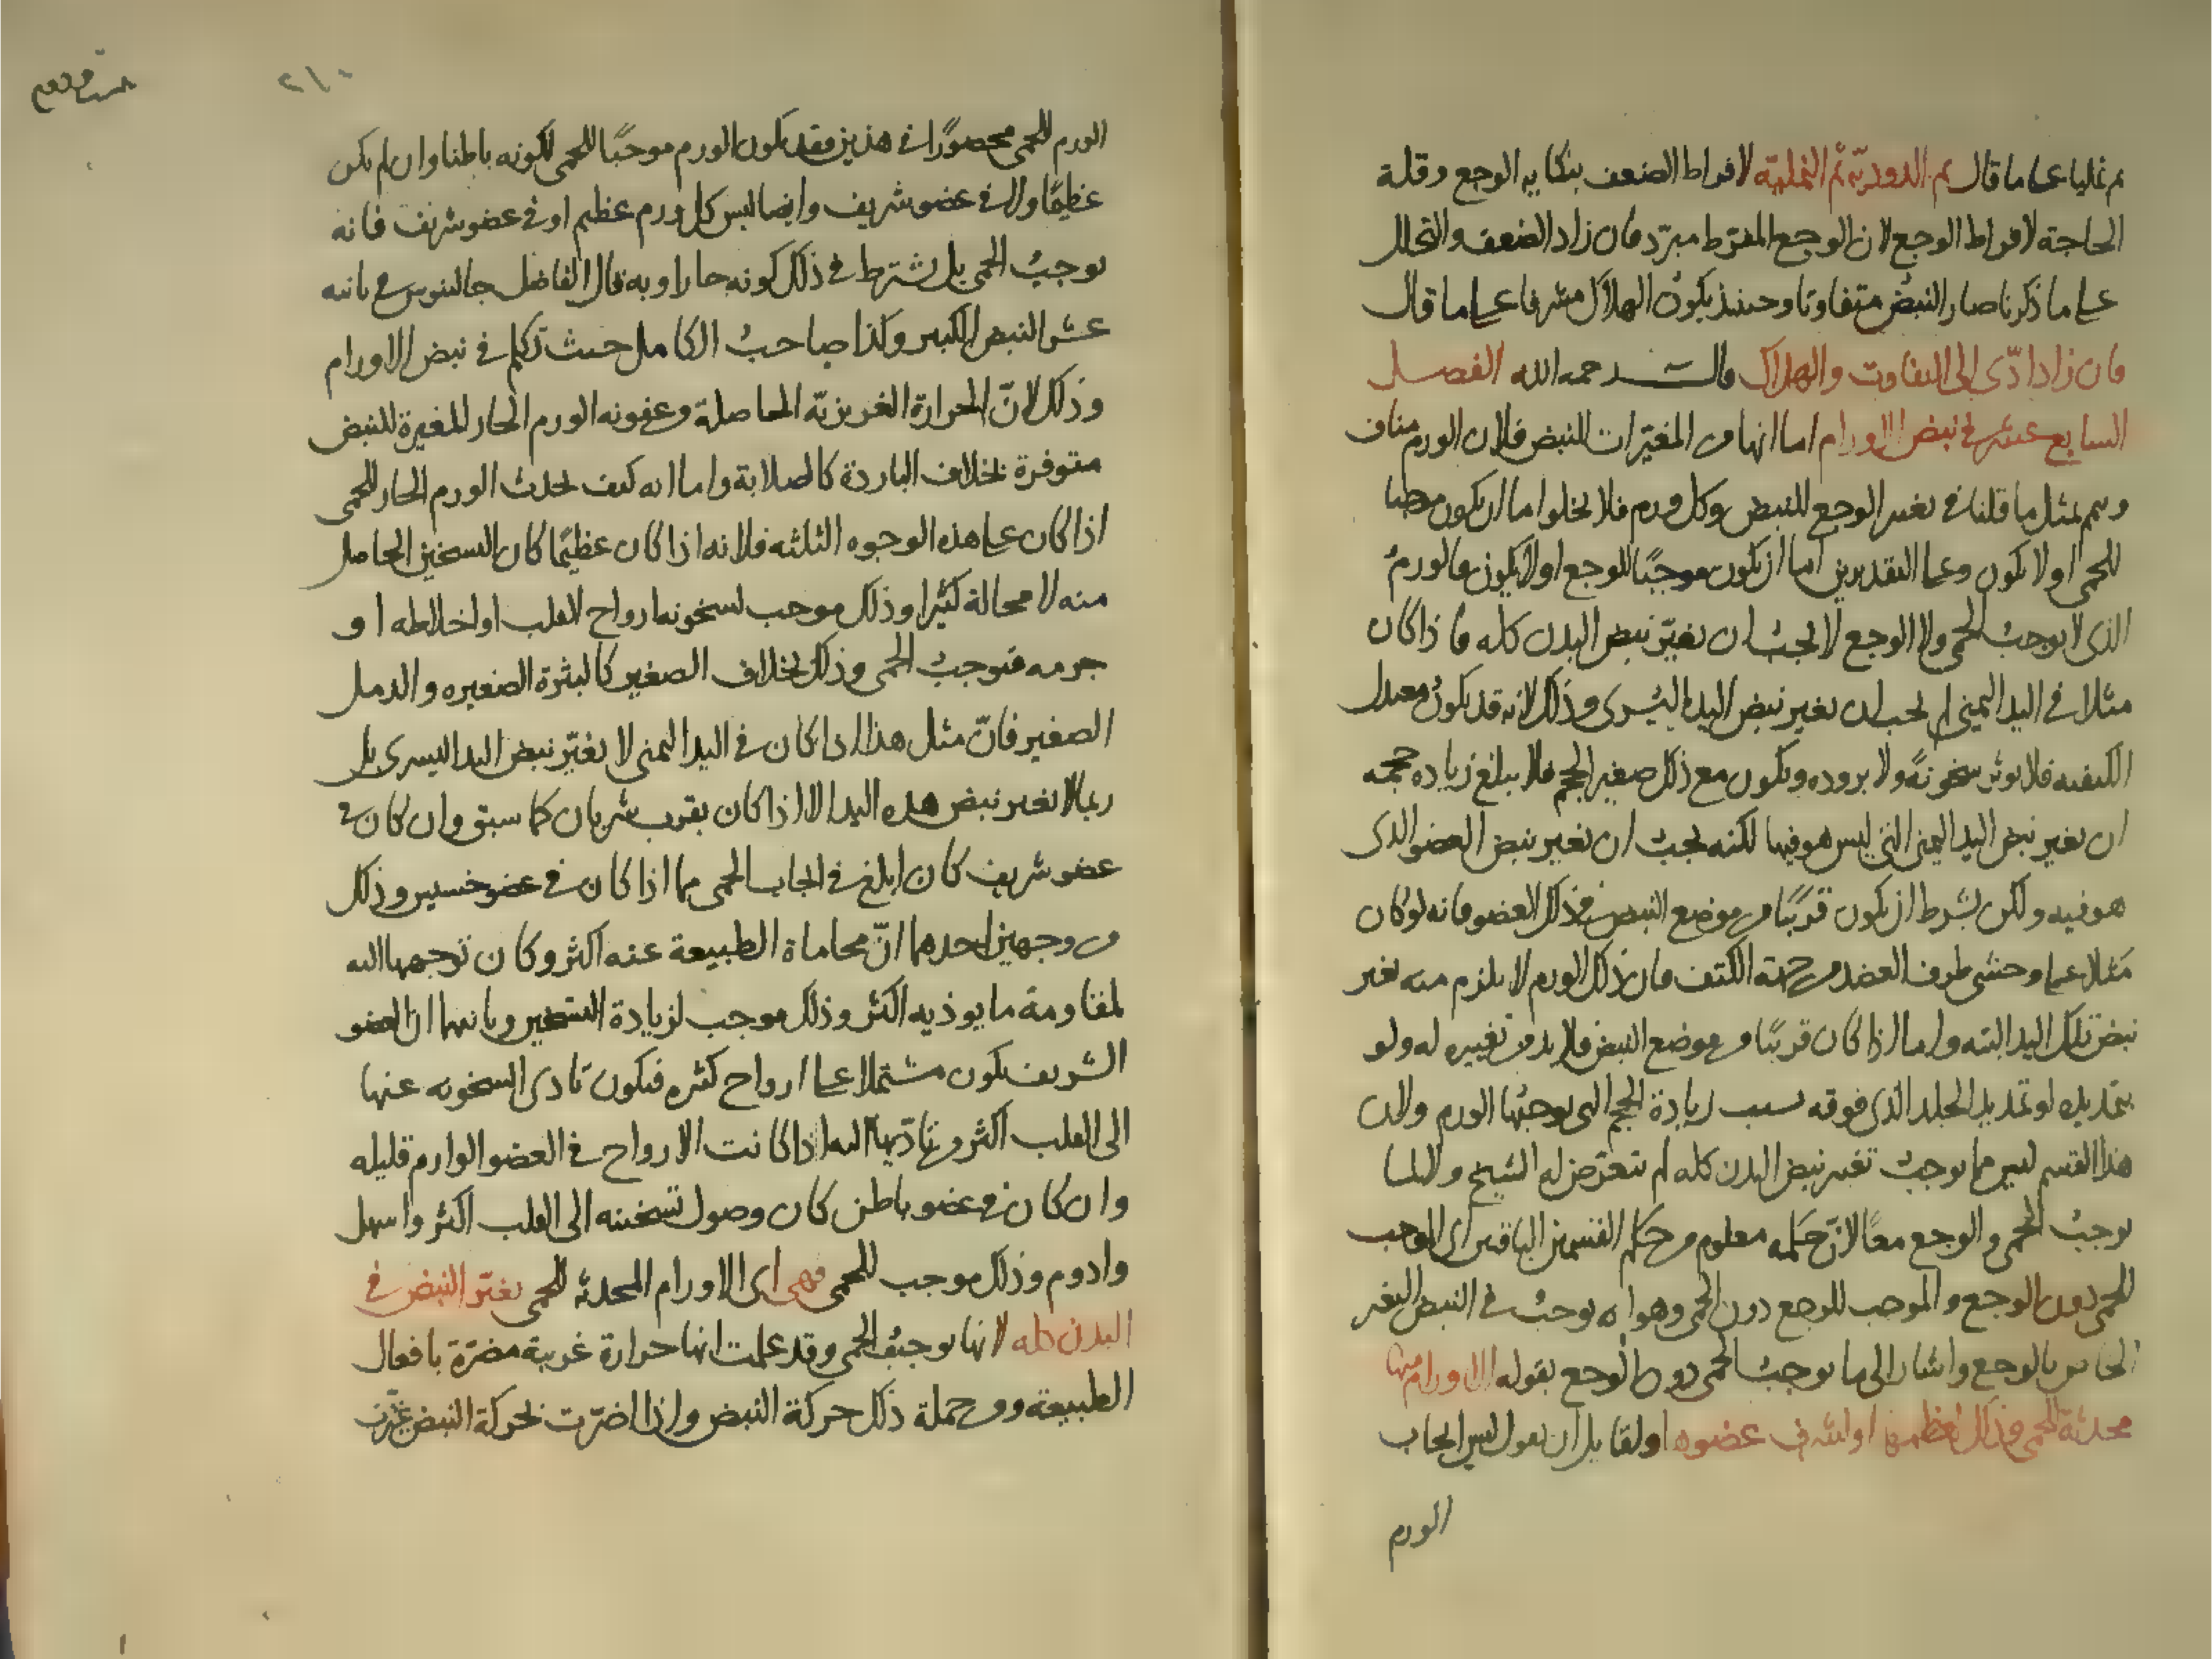 ثم نمليا على ما قال ثم الدودية ثم النملية لافراط الضعف بنكاية الوجع وقلة
الحاجة لافراط الوجع لان الوجع المفرط مبرد فان زاد الضعف والتحلل
على ما ذكرنا صار النبض متفاوتا وحينئذ يكون الهلاك مشرفا على ما قال
فان زاد ادّى الى التفاوت والهلاك قال رحمه الله الفصل
السابع عشر في نبض الاورام اما انها من المغيرات للنبض فلان الورم مناف
وسم بمثل ما قلنا في تغيير الوجع للنبض وكل ورم فلا يخلو اما ان يكون موجبا
للحمى او لا يكون وعلى التقديرين اما ان يكون موجبًا للوجع او لا يكون والورم
الذي لا يوجب الحمى ولا الوجع لا يجب ان يغيّر نبض البدن كله فاذا كان
مثلا في اليد اليمنى لم يجب ان يغير نبض اليد اليسرى وذلك لانه قد يكون معتدل
الكيفيه فلا يوثر سخونةً ولا بروده ويكون مع ذلك صغير الحجم فلا يبلغ زياده حجمه
ان يغير نبض اليد اليمنى التي ليس هو فيها لكنه يجب ان يغير نبض العضو الذي
هو فيه ولكن بشرط ان يكون قريبًا من موضع النبض في ذلك العضو فانه لو كان
مثلا على وحشي طرف العضد من جهة الكتف فان ذلك الورم لا يلزم منه تغير
نبض تلك اليد البته واما اذا كان قريبًا من موضع النبض فلا بد من تغييره له ولو
بتمديده او تمديد الجلد الذي فوقه بسبب زيادة الحجم التي يوجبها الورم ولان
هذا القسم ليس مما يوجب تغير نبض البدن كله لم يتعرّض له الشيخ ولا لما
يوجب الحمى والوجع معًا لانّ حكمه معلوم من حكم القسمين الباقيين اي الموجب
للحمى دون الوجع والموجب للوجع دون الحمى وهو انه يوجب في النبض التغير
الخاص بالوجع واشار الى ما يوجب الحمى دون الوجع بقوله الاورام منها
محدثة للحمى وذلك لعظمها او لشرف عضوه او لقايل ان يقول ليس ايجاب
الورم
٢١٠
الورم للحمى محصورًا في هذين فقد يكون الورم موجبًا للحمى لكونه باطنا وان لم يكن
عظيمًا ولا في عضو شريف وايضا ليس كل ورم عظيم او في عضو شريف فانه
يوجب الحمى بل يشترط في ذلك كونه حارا وبه قال الفاضل جالينوس في ثانيه
عشر النبض الكبير وكذا صاحب الكامل حيث تكلم في نبض الاورام
وذلك لانّ الحرارة الغريزيّه الحاصلة وعفونه الورم الحار المغيرة للنبض
متوفرة بخلاف الباردة كالصلابة واما انه كيف يحدث الورم الحار للحمى
اذا كان على هذه الوجوه الثلثه فلانه اذا كان عظيمًا كان التسخين الحاصل
منه لا محالة كثيرا وذلك موجب لسخونه ارواح القلب او اخلاطه او
جرمه فتوجب الحمى وذلك بخلاف الصغير كالبثرة الصغيره والدمل
الصغير فانّ مثل هذا اذا كان في اليد اليمنى لا يغيّر نبض اليد اليسرى بل
ربما لا يغير نبض هذه اليد الا اذا كان بقرب شريان كما سبق وان كان في
عضو شريف كان ابلغ في ايجاب الحمى مما اذا كان في عضو خسيس وذلك
من وجهين احدهما انّ محاماة الطبيعة عنه اكثر وكان توجهها اليه
لمقاومة ما يوذيه اكثر وذلك موجب لزيادة التسخين وثانيهما ان العضو
الشريف يكون مشتملا على ارواح كثيره فيكون تادى السخونه عنها
الى القلب اكثر من تادّيها اليه اذا كانت الارواح في العضو الوارم قليله
وان كان في عضو باطن كان وصول تسخينه الى القلب اكثر واسهل
وادوم وذلك موجب للحمى فهى اى الاورام المحدثه للحمى يغيّر النبض في
البدن كله لانها توجب الحمى وقد علمت انها حرارة غريبة مضرّة بافعال
الطبيعة ومن جملة ذلك حركة النبض واذا اضرّت بحركة النبض غيّرت